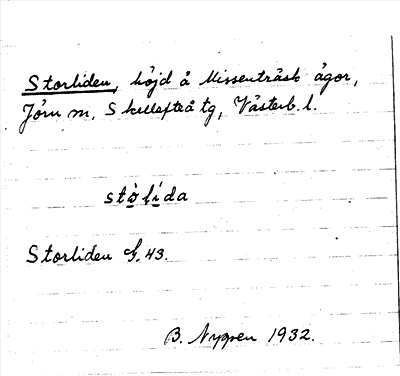 Storliden, höjd å Missenträsk ägor,
Jörn sn, Skellefteå tg, Västerb. l.
stò̱lí̱da
Storliden G. 43.
B. Nygren 1932.